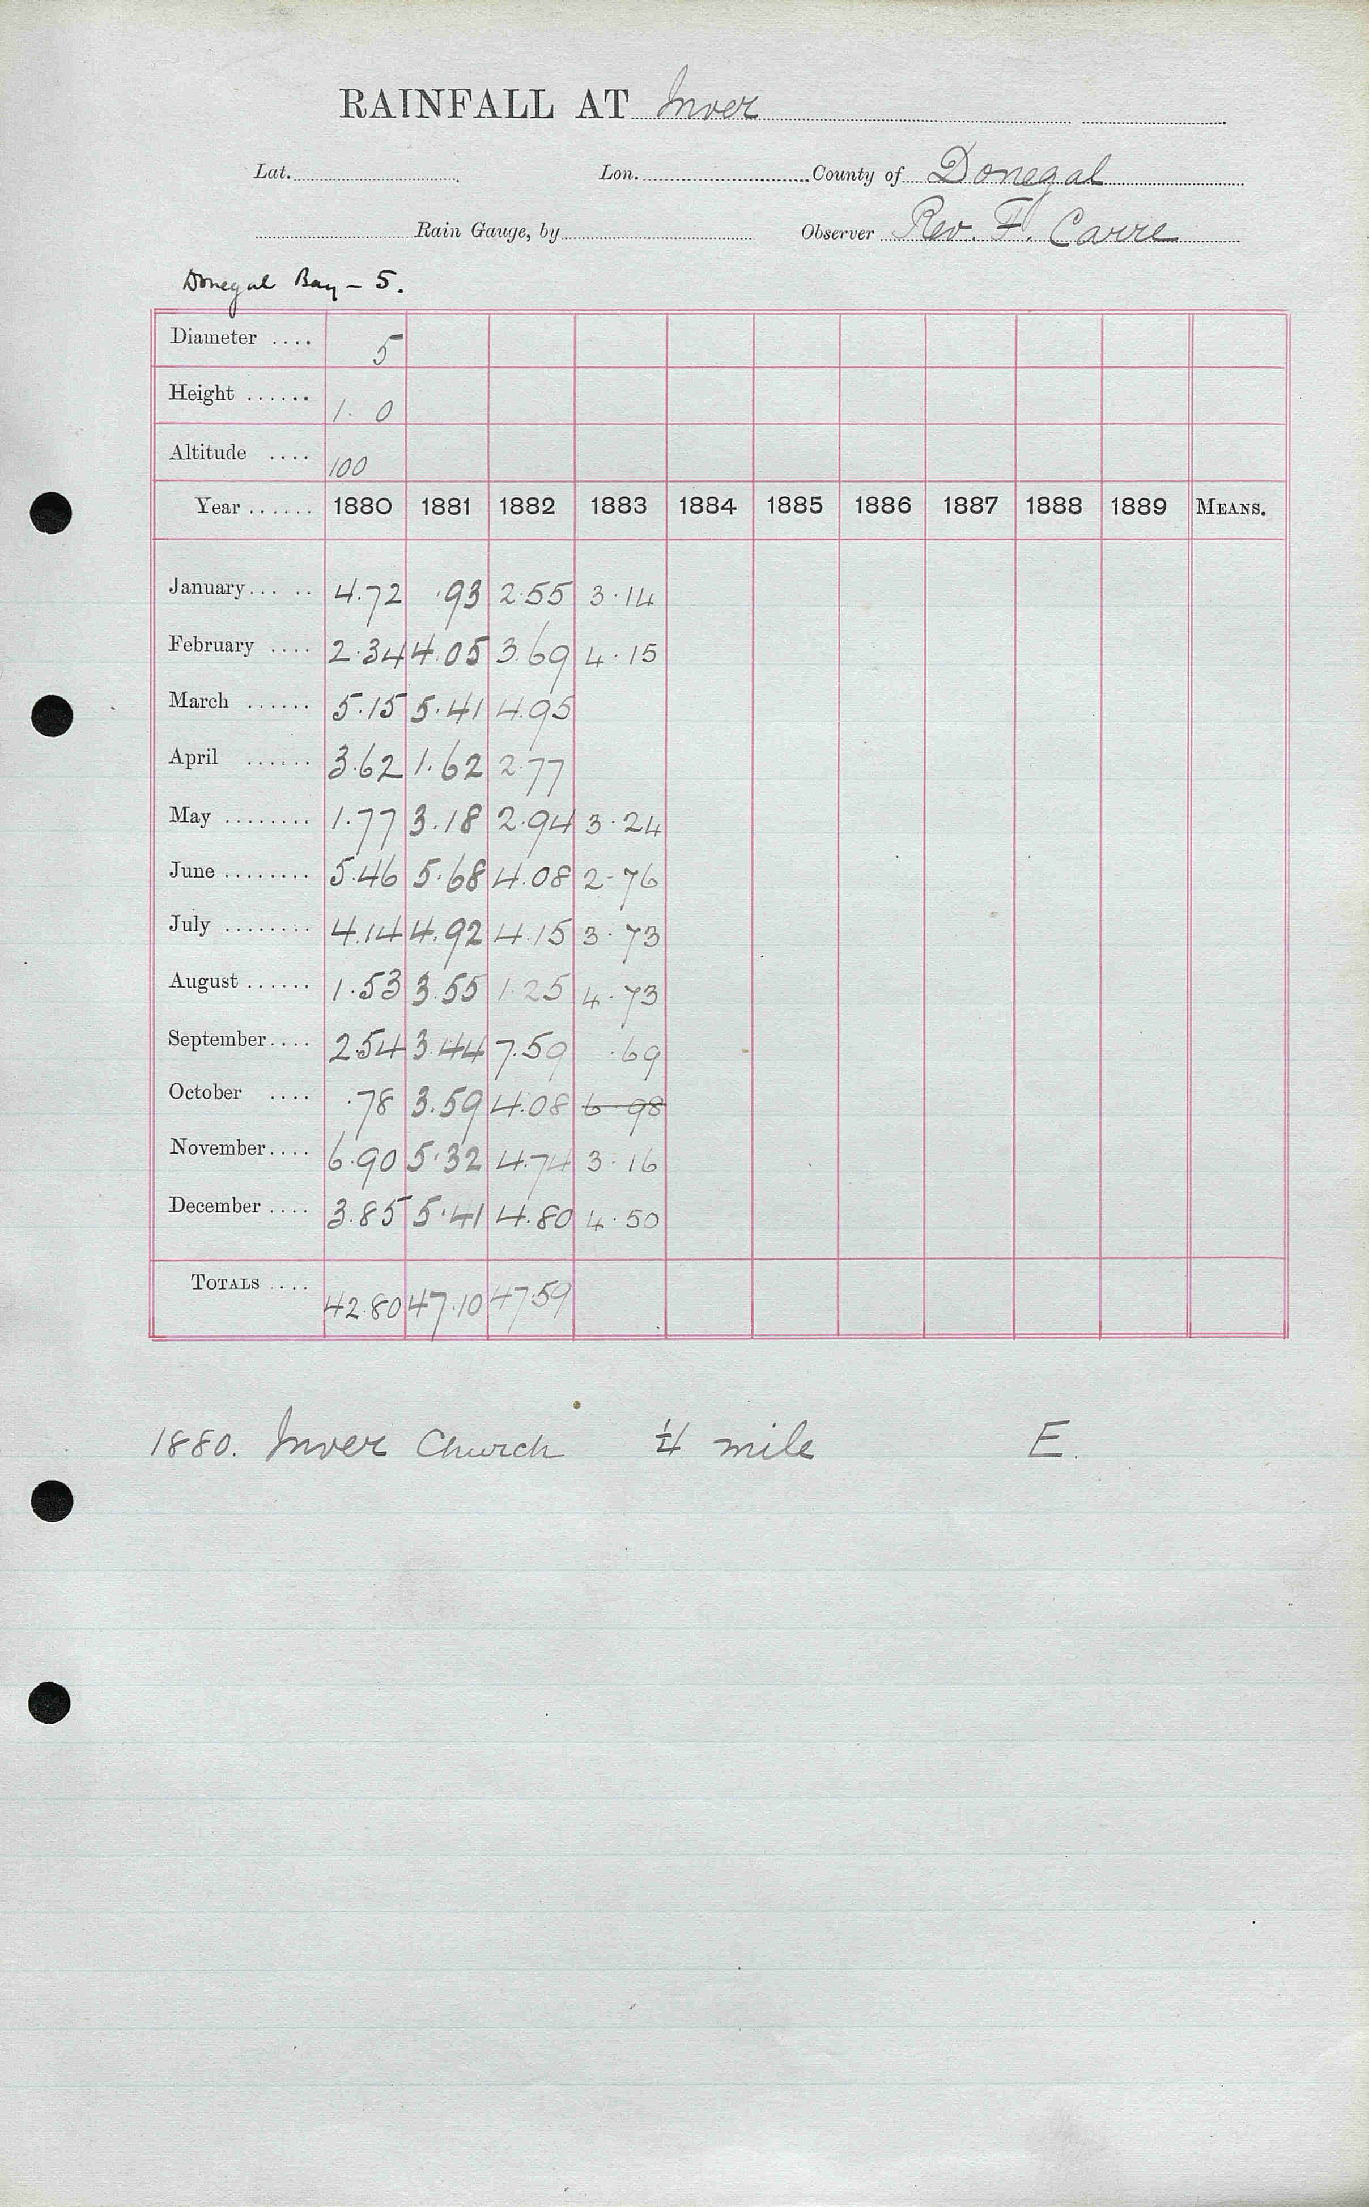 RAINFALL AT Inver
Lat. Lon. County of Donegal
Rain Gauge, by Observer Rev. F. Carre
Donegal Bay - 5.
Diameter .... 5
Height ...... 1. 0
Altitude .... 100
Year ...... 1880 1881 1882 1883 1884 1885 1886 1887 1888 1889 MEANS.
January... .. 4.72 .93 2.55 3.14
February .... 2.34 4.05 3.69 4.15
March ...... 5.15 5.41 4.95
April ...... 3.62 1.62 2.77
May ........ 1.77 3.18 2.94 3.24
June ........ 5.46 5.68 4.08 2.76
July ........ 4.14 4.92 4.15 3.73
August ...... 1.53 3.55 1.25 4.73
September.... 2.54 3.44 7.59 .69
October .... .78 3.59 4.08 6 98
November.... 6.90 5.32 4.74 3.16
December .... 3.85 5.41 4.80 4.50
TOTALS .... 42.80 47.10 47.59
1880. Inver Church ¼ mile E.